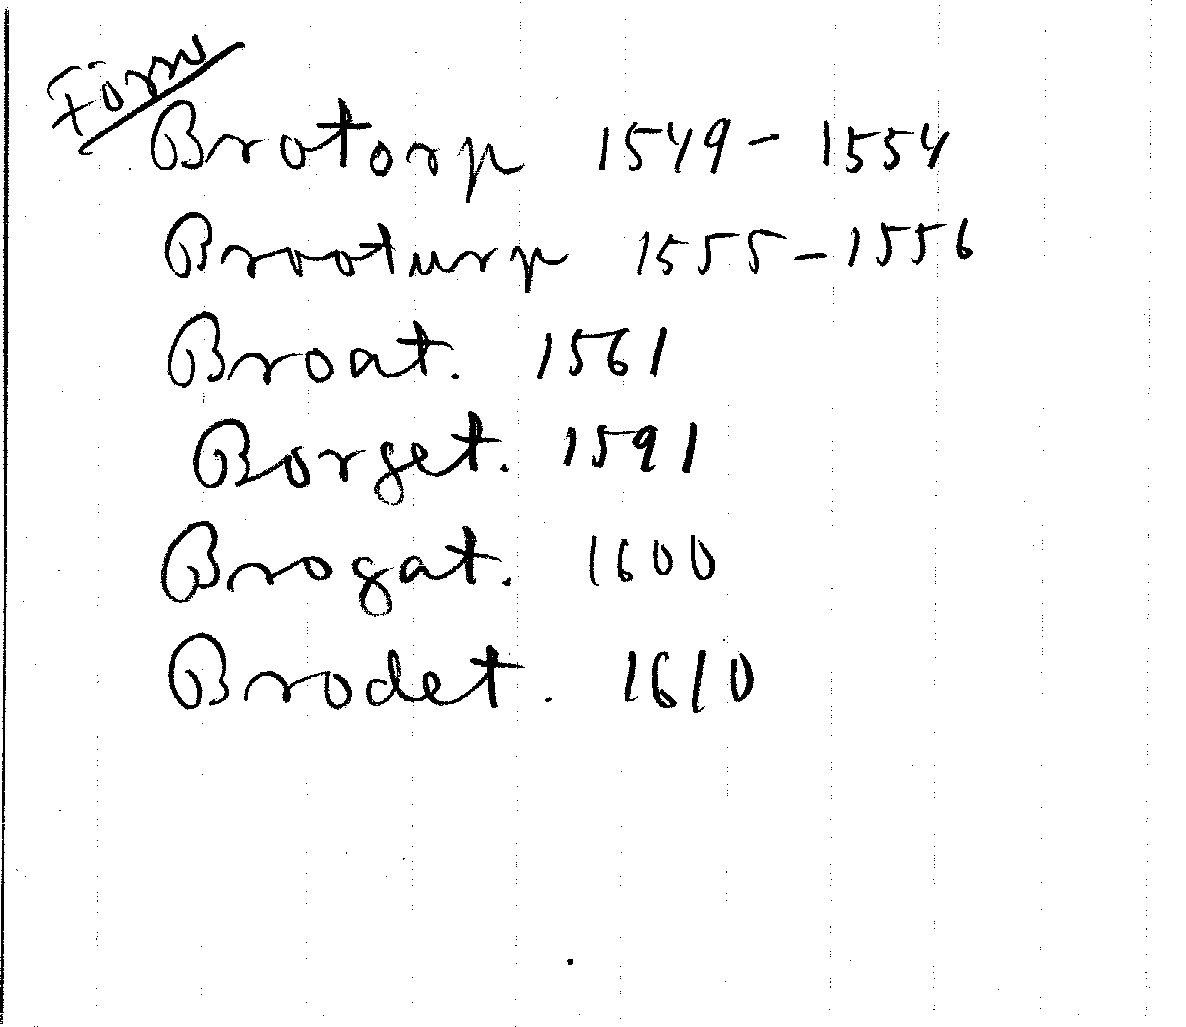 Förn
Brotorp 1549 - 1554
Brooturp 1555 - 1556
Broat. 1561
Borget. 1591
Brogat. 1600
Brodet. 1610